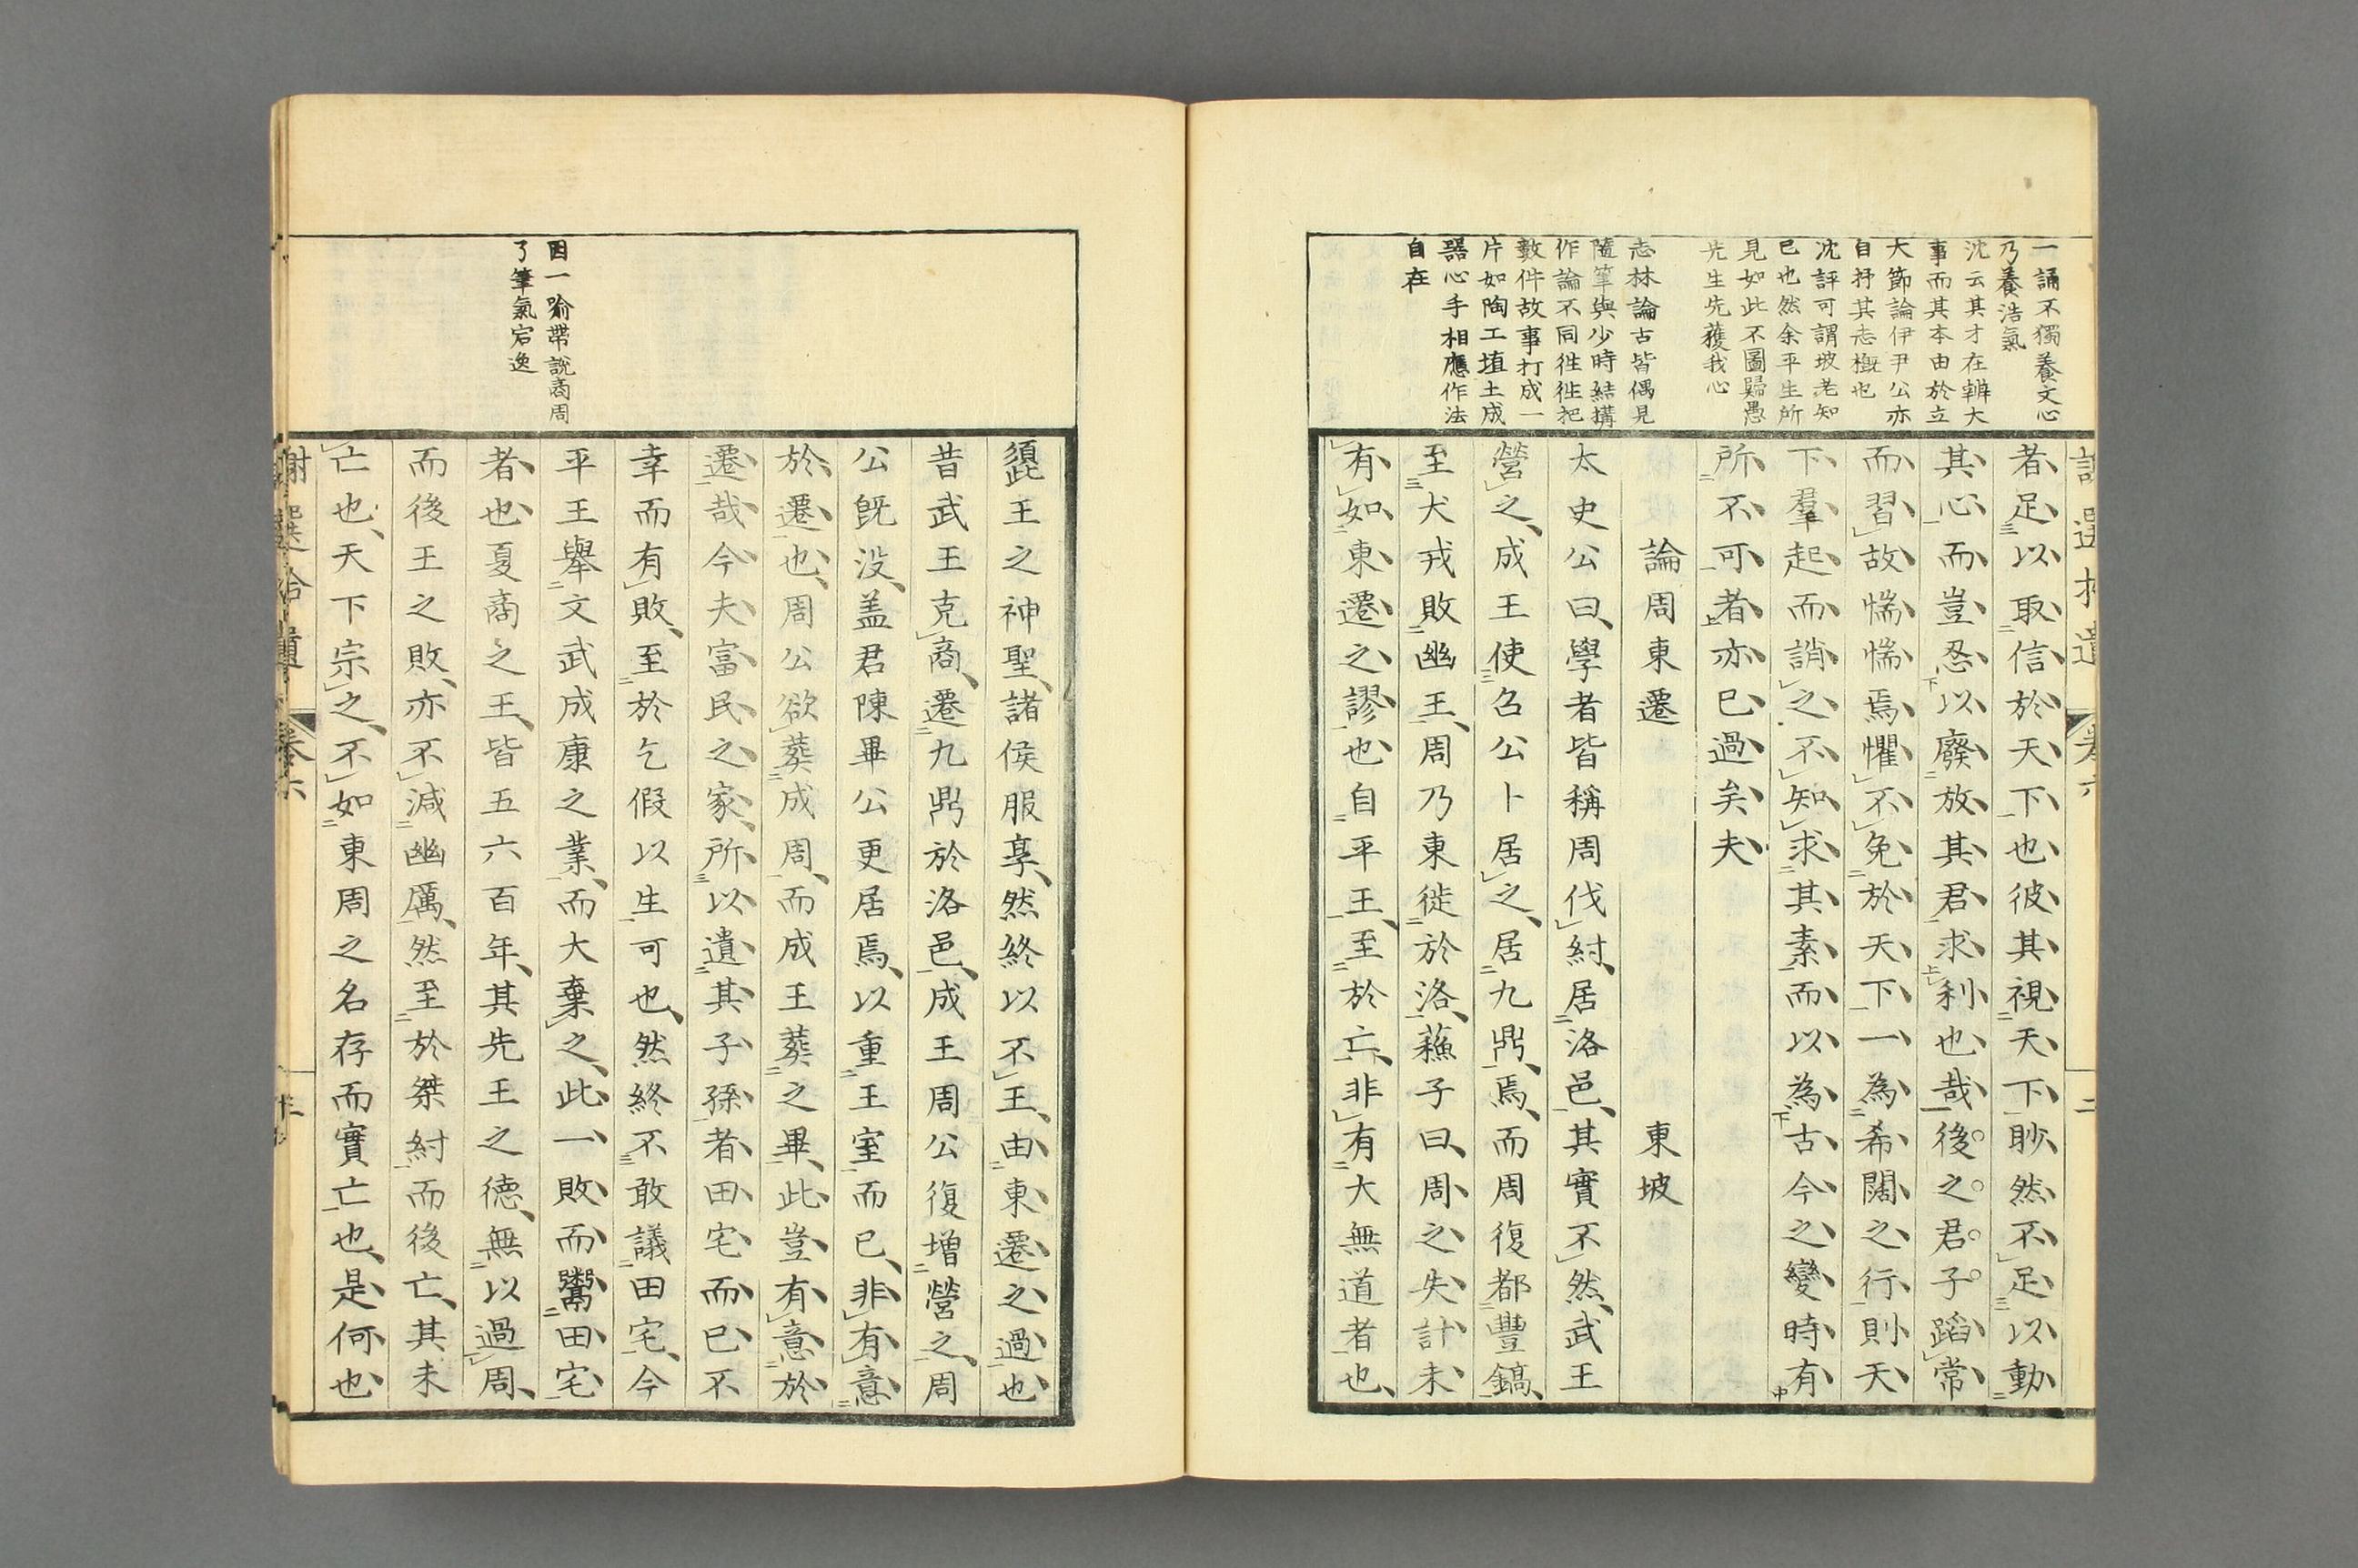 一誦不獨養文心
乃養浩氣
沈云其才在辨大
事而其本由於立
大節論伊尹公亦
自抒其志槪也
沈評可謂坡老知
已也然余平生所
見如此不圖歸愚
先生先獲我心
志林論古皆偶見
隨筆與少時結搆
作論不同徃徃把
數件故事打成一
片如陶工埴土成
器心手相應作法
自在
者足以取信於天下也彼其視天下眇然不足以動
其心而豈忍以廢放其君求利也哉後之君子蹈常
而習故惴惴焉懼不免於天下一為希闊之行則天
下羣起而誚之不知求其素而以為古今之變時有
所不可者亦已過矣夫
論周東遷 東坡
太史公曰學者皆稱周伐紂居洛邑其實不然武王
營之成王使召公卜居之居九鼎焉而周復都豐鎬
至犬戎敗幽王周乃東徙於洛蘓子曰周之失計未
有如東遷之謬也自平王至於亡非有大無道者也
因一喻帶說商周
了筆氣宕逸
頿王之神聖諸侯服享然終以不王由東遷之過也
昔武王克商遷九鼎於洛邑成王周公復增營之周
公旣没盖君陳畢公更居焉以重王室而已非有意
於遷也周公欲葬成周而成王葬之畢此豈有意於
遷哉今夫富民之家所以遺其子孫者田宅而已不
幸而有敗至於乞假以生可也然終不敢議田宅今
平王舉文武成康之業而大棄之此一敗而鬻田宅
者也夏商之王皆五六百年其先王之德無以過周
而後王之敗亦不減幽厲然至於桀紂而後亡其未
亡也天下宗之不如東周之名存而實亡也是何也